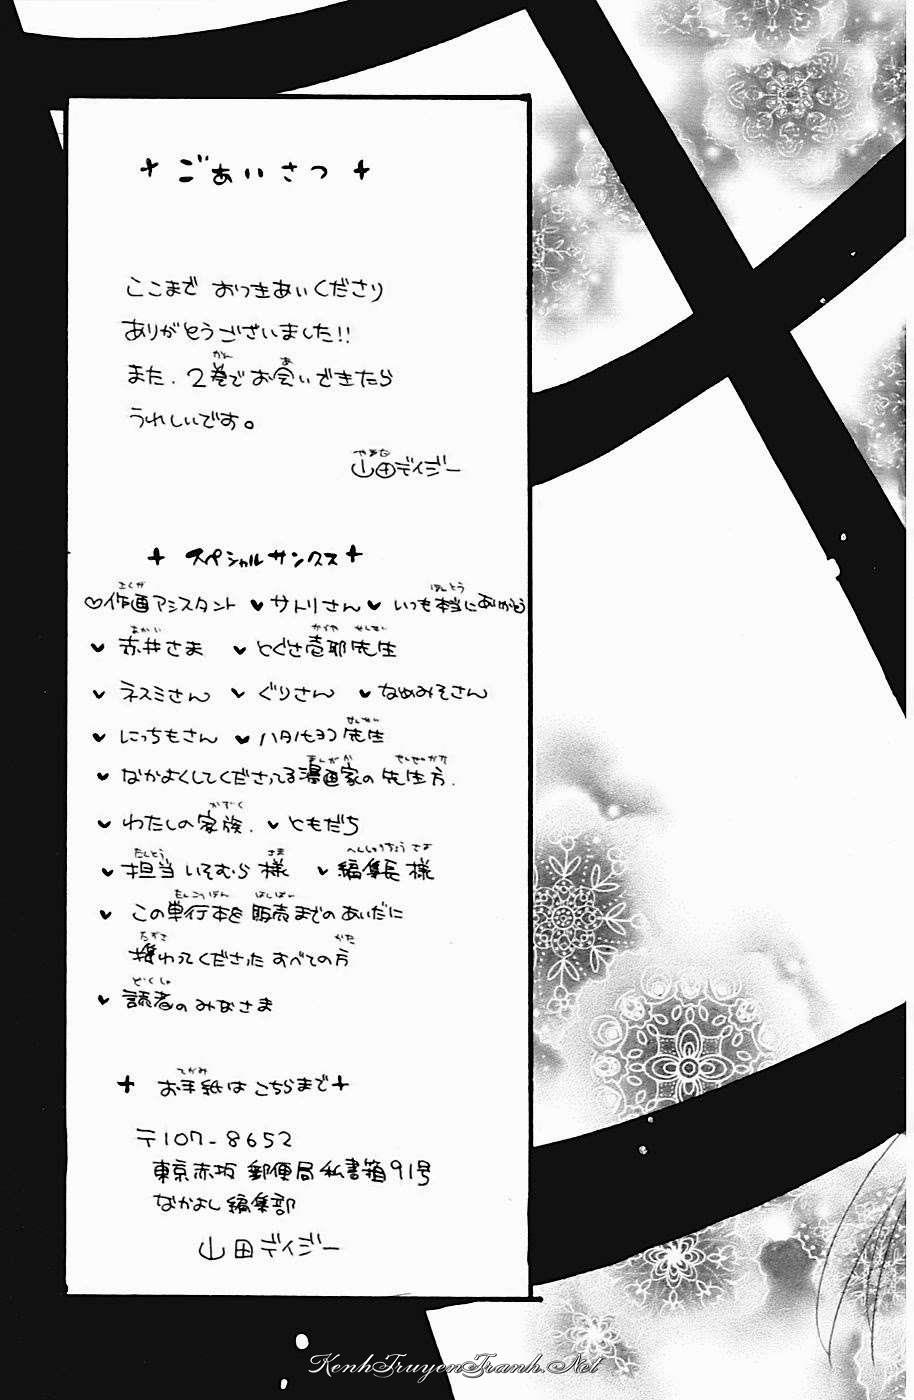 ごあいさつ
ここまで おつきあいくださり
ありがとうございました!!
また、2巻でお会いできたら
うれしいです。
山田デイジー
スペシャルサンクス
♡作画アシスタント ♥サトリさん♥ いつも本当にありがとう
♥ 赤井さま ♥ とぐさ壱耶先生
♥ ネスミさん ♥ ぐりさん ♥ なめみそさん
♥ にっちもさん ♥ 先生
♥ なかよくしてくださってる漫画家の先生方.
♥ わたしの家族. ♥ ともだち
♥ 担当 いそむら 様 ♥ 編集長 様
♥ この単行本を 販売までのあいだに
携わってくださった すべての方
♥ 読者の みなさま
お手紙は こちらまで
〒107-8652
東京赤坂 郵便局 私書箱91号
なかよし編集部
山田デイジー
KenhTruyenTranh.Net